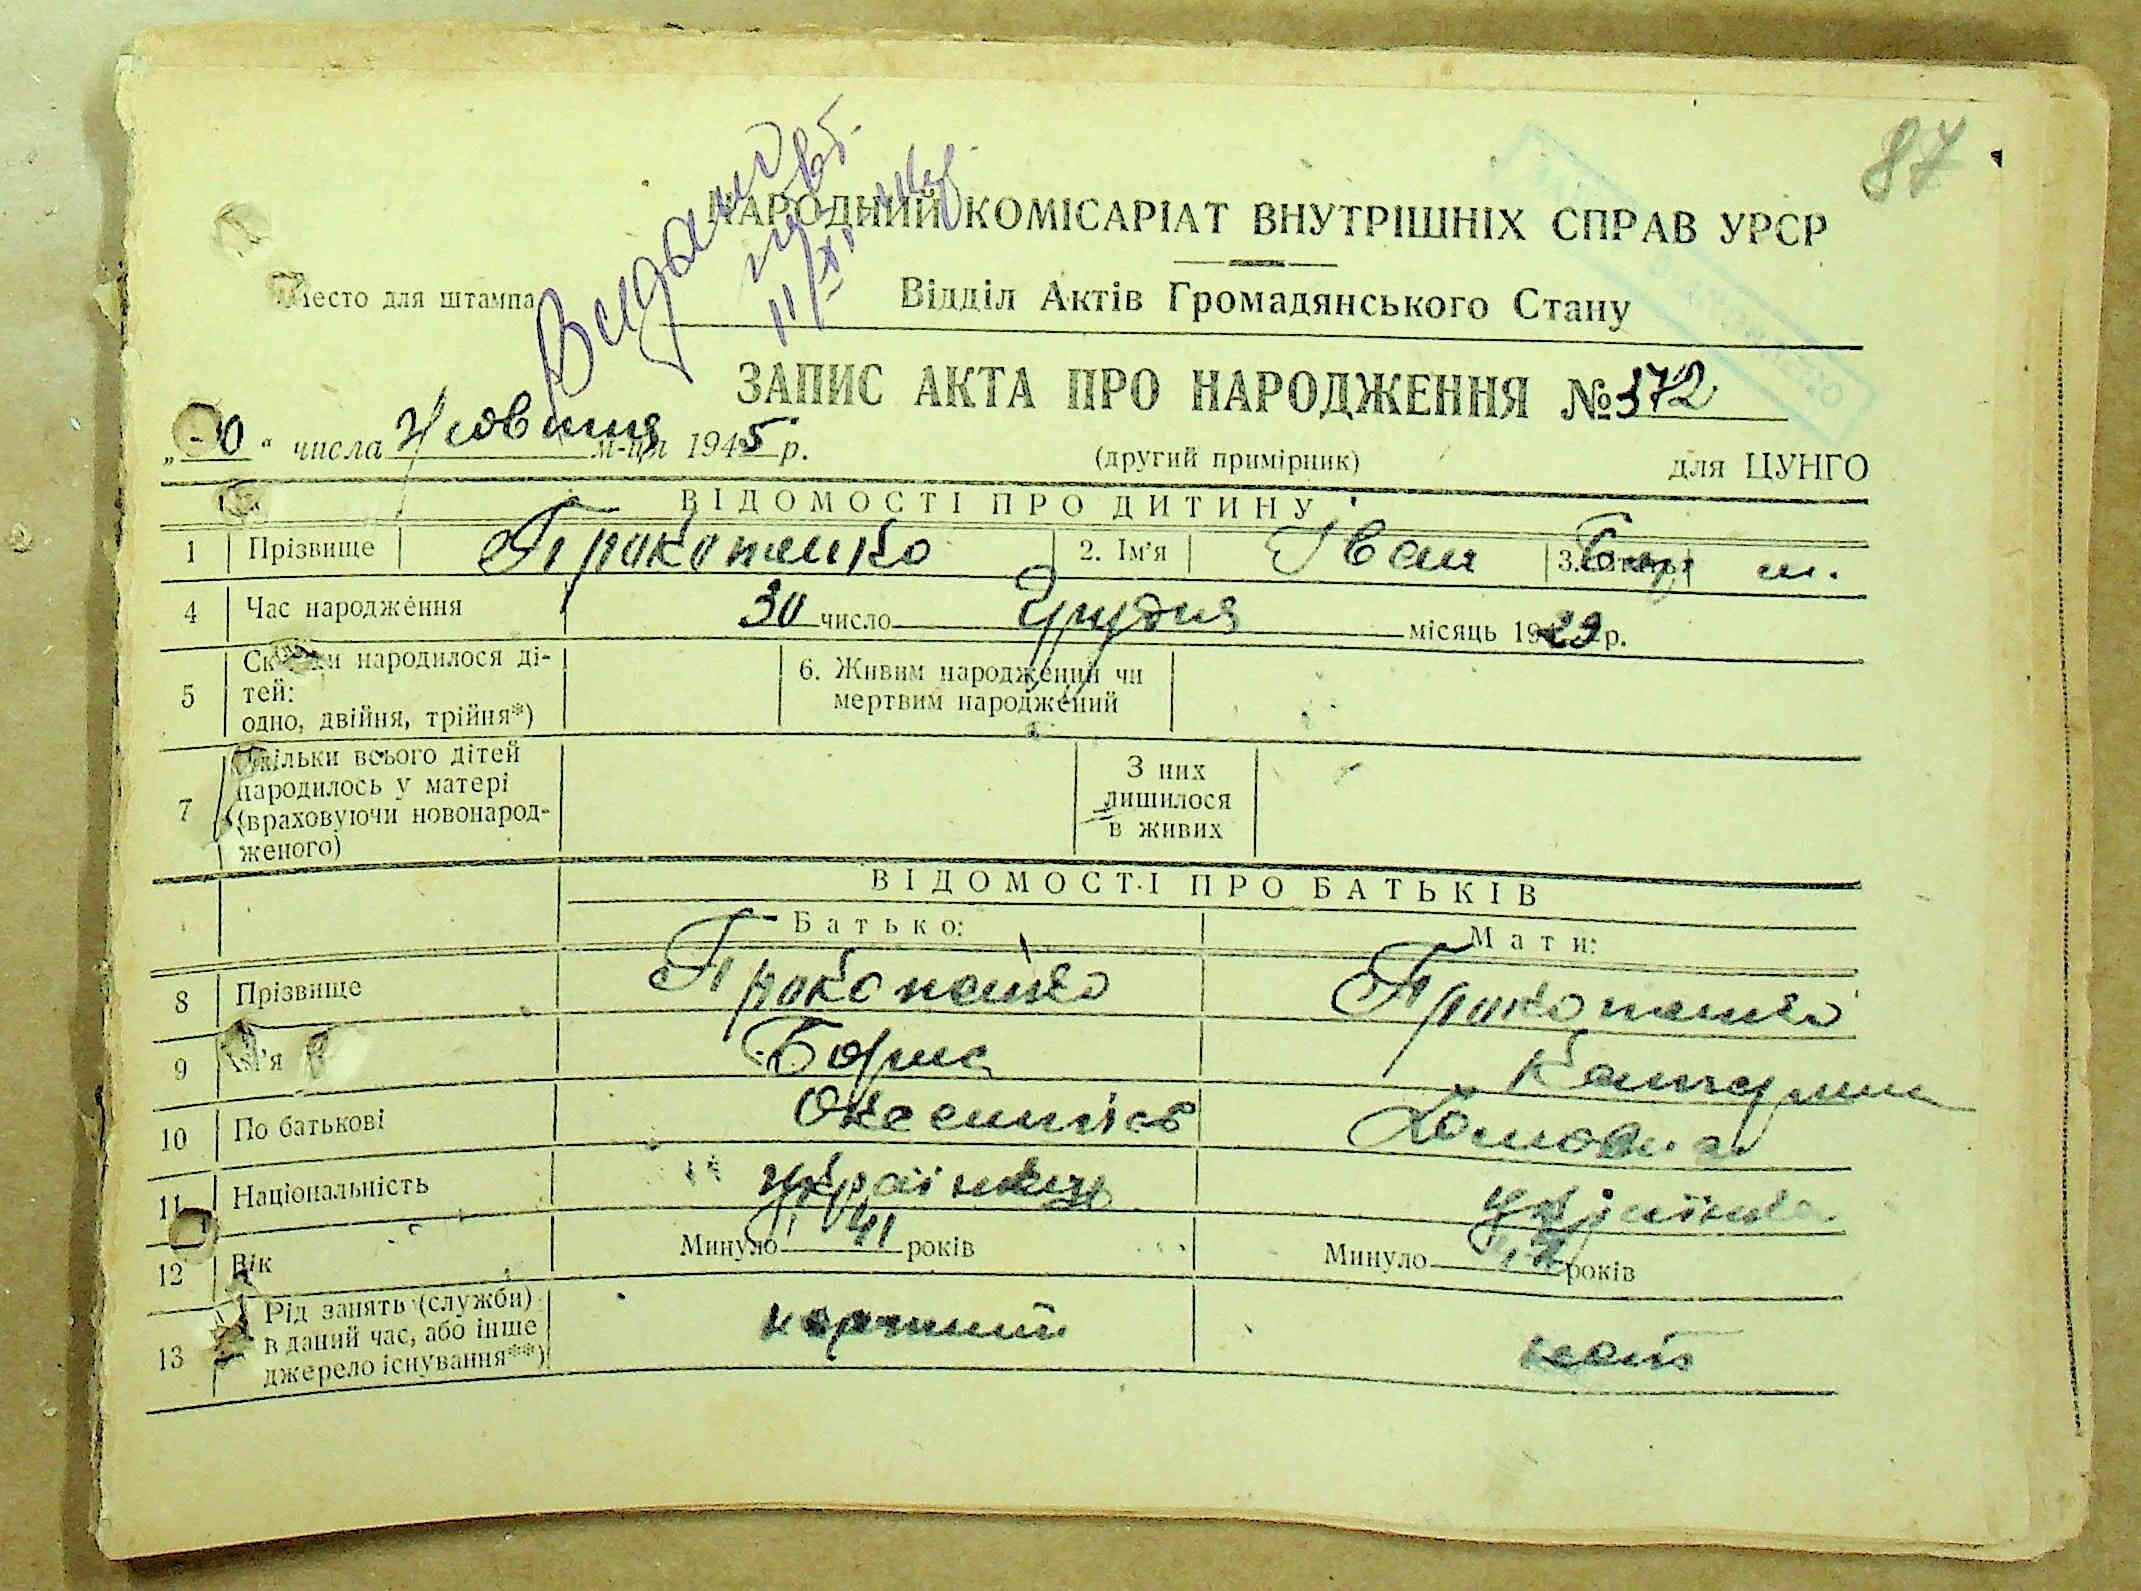 87
НАРОДНИЙ КОМІСАРІАТ ВНУТРІШНІХ СПРАВ УРСР
Место для штампа
Відділ Актів Громадянського Стану
ЗАПИС АКТА ПРО НАРОДЖЕННЯ № 372
числа Жовтня м-ця 1945 р.
(другий примірник)
для ЦУНГО
ВІДОМОСТІ ПРО ДИТИНУ
1 Прізвище Прокопенко 2. Ім'я Іван
4 Час народження 30 число Грудня місяць 1929 р.
5 Скільки народилося ді-
тей:
одно, двійня, трійня*)
6. Живим народжений чи
мертвим народжений
7 Скільки всього дітей
народилось у матері
(враховуючи новонарод-
женого)
З них
лишилося
в живих
ВІДОМОСТІ ПРО БАТЬКІВ
Батько: Мати:
8 Прізвище Прокопенко Прокопенко
9 Ім'я Борис Катерина
10 По батькові Хомовна
11 Національність українець українка
12 Вік Минуло 41 років Минуло років
13 Рід занять (служби)
в даний час, або інше
джерело існування**)